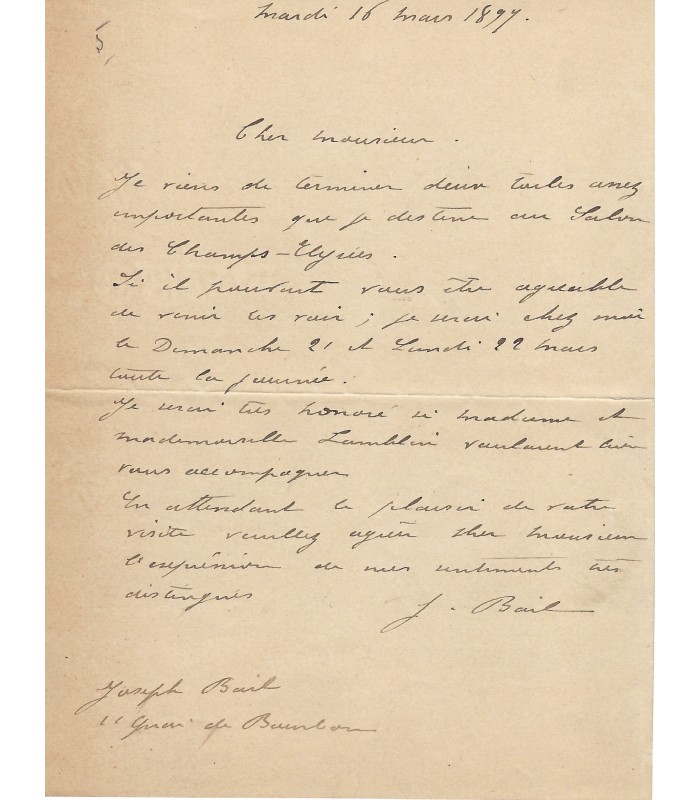 Mardi 16 mars 1897.
Cher monsieur.
Je viens de terminer deux toiles assez
importantes que je destine au Salon
des Champs-Elysées.
Si il pouvait vous être agréable
de venir les voir ; je serai chez moi
le Dimanche 21 et Lundi 22 mars
toute la journée.
Je serai très honoré si madame et
mademoiselle Lamblin voulaient bien
vous accompagner
En attendant le plaisir de votre
visite veuillez agréer cher monsieur
l'expression de mes sentiments très
distingués
J. Bail
Joseph Bail
Quai de Bourbon